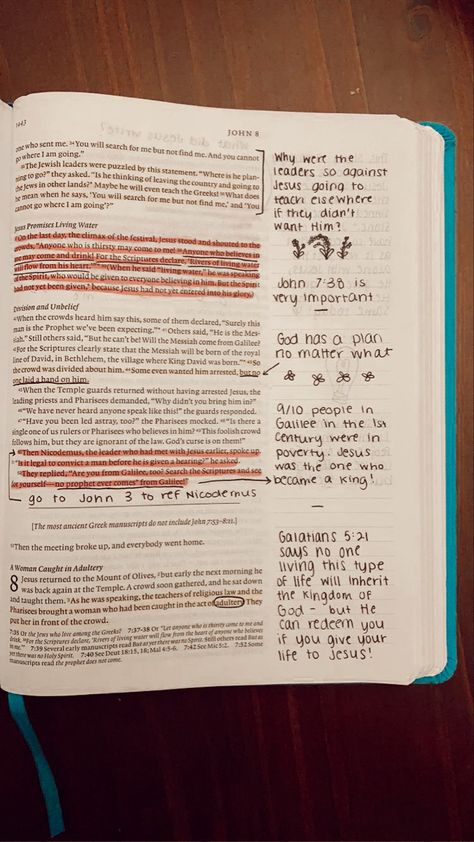 1443
JOHN 8
one who sent me. 34You will search for me but not find me. And you cannot
go where I am going."
35The Jewish leaders were puzzled by this statement. "Where is he plan-
ning to go?" they asked. "Is he thinking of leaving the country and going to
the Jews in other lands? Maybe he will even teach the Greeks! 36What does
he mean when he says, 'You will search for me but not find me,' and 'You
cannot go where I am going'?"
Jesus Promises Living Water
37On the last day, the climax of the festival, Jesus stood and shouted to the
crowds, "Anyone who is thirsty may come to me! 38Anyone who believes in
me may come and drink! For the Scriptures declare, 'Rivers of living water
will flow from his heart.'" 39(When he said "living water," he was speaking
of the Spirit, who would be given to everyone believing in him. But the Spirit
had not yet been given, because Jesus had not yet entered into his glory.)
Division and Unbelief
40When the crowds heard him say this, some of them declared, "Surely this
man is the Prophet we've been expecting." 41Others said, "He is the Mes-
siah." Still others said, "But he can't be! Will the Messiah come from Galilee?
42For the Scriptures clearly state that the Messiah will be born of the royal
line of David, in Bethlehem, the village where King David was born." 43So
the crowd was divided about him. 44Some even wanted him arrested, but no
one laid a hand on him.
45When the Temple guards returned without having arrested Jesus, the
leading priests and Pharisees demanded, "Why didn't you bring him in?"
46"We have never heard anyone speak like this!" the guards responded.
47"Have you been led astray, too?" the Pharisees mocked. 48"Is there a
single one of us rulers or Pharisees who believes in him? 49This foolish crowd
follows him, but they are ignorant of the law. God's curse is on them!"
50Then Nicodemus, the leader who had met with Jesus earlier, spoke up.
51"Is it legal to convict a man before he is given a hearing?" he asked.
52They replied, "Are you from Galilee, too? Search the Scriptures and see
for yourself—no prophet ever comes from Galilee!"
go to John 3 to ref Nicodemus
[The most ancient Greek manuscripts do not include John 7:53–8:11.]
53Then the meeting broke up, and everybody went home.
A Woman Caught in Adultery
8 Jesus returned to the Mount of Olives, 2but early the next morning he
was back again at the Temple. A crowd soon gathered, and he sat down
and taught them. 3As he was speaking, the teachers of religious law and the
Pharisees brought a woman who had been caught in the act of adultery. They
put her in front of the crowd.
7:35 Or the Jews who live among the Greeks? 7:37-38 Or "Let anyone who is thirsty come to me and
drink. 38For the Scriptures declare, 'Rivers of living water will flow from the heart of anyone who believes
in me.'" 7:39 Several early manuscripts read But as yet there was no Spirit. Still others read But as
yet there was no Holy Spirit. 7:40 See Deut 18:15, 18; Mal 4:5-6. 7:42 See Mic 5:2. 7:52 Some
manuscripts read the prophet does not come.
Why were the
leaders so against
Jesus going to
teach elsewhere
if they didn't
want Him?
John 7:38 is
very important
God has a plan
no matter what
9/10 people in
Galilee in the 1st
Century were in
poverty. Jesus
was the one who
became a king!
Galatians 5:21
says no one
living this type
of life will inherit
the kingdom of
God - but He
can redeem you
if you give your
life to Jesus!